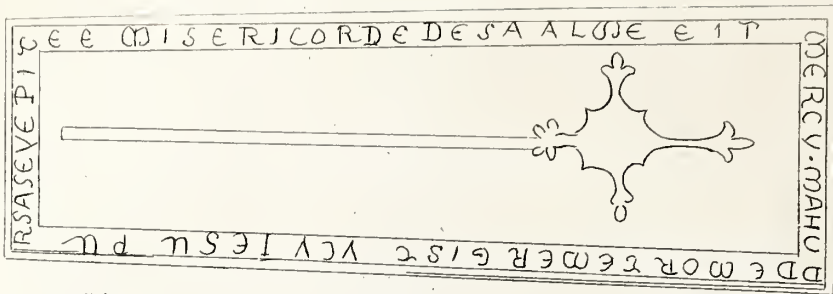 TEE MISERICORDE DE SA ALME EIT
MERCY·MAHU
DDEMORTEMER GIST YCY IESU PU
RSASEVEPI